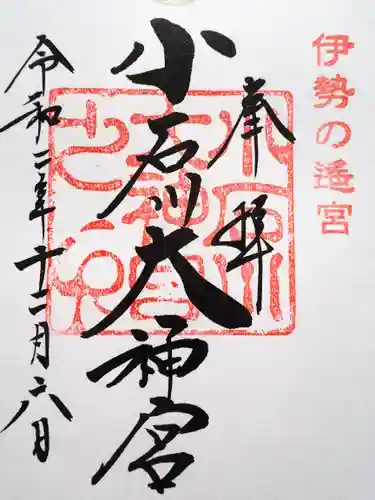 伊勢の遙宮
奉拝
小石川大神宮
令和二年十二月六日